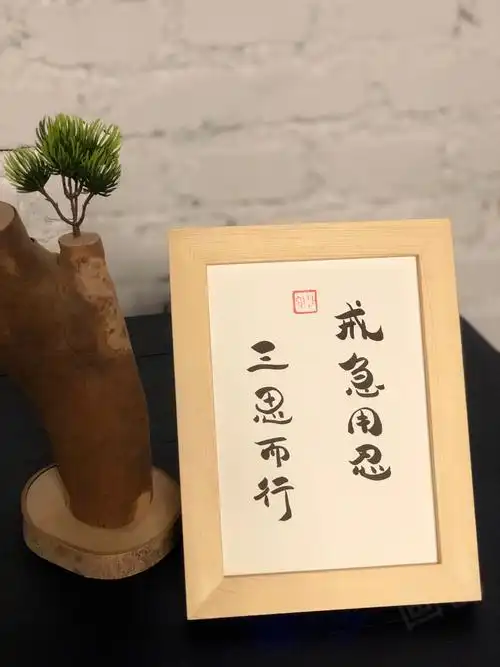 戒急用忍
三思而行